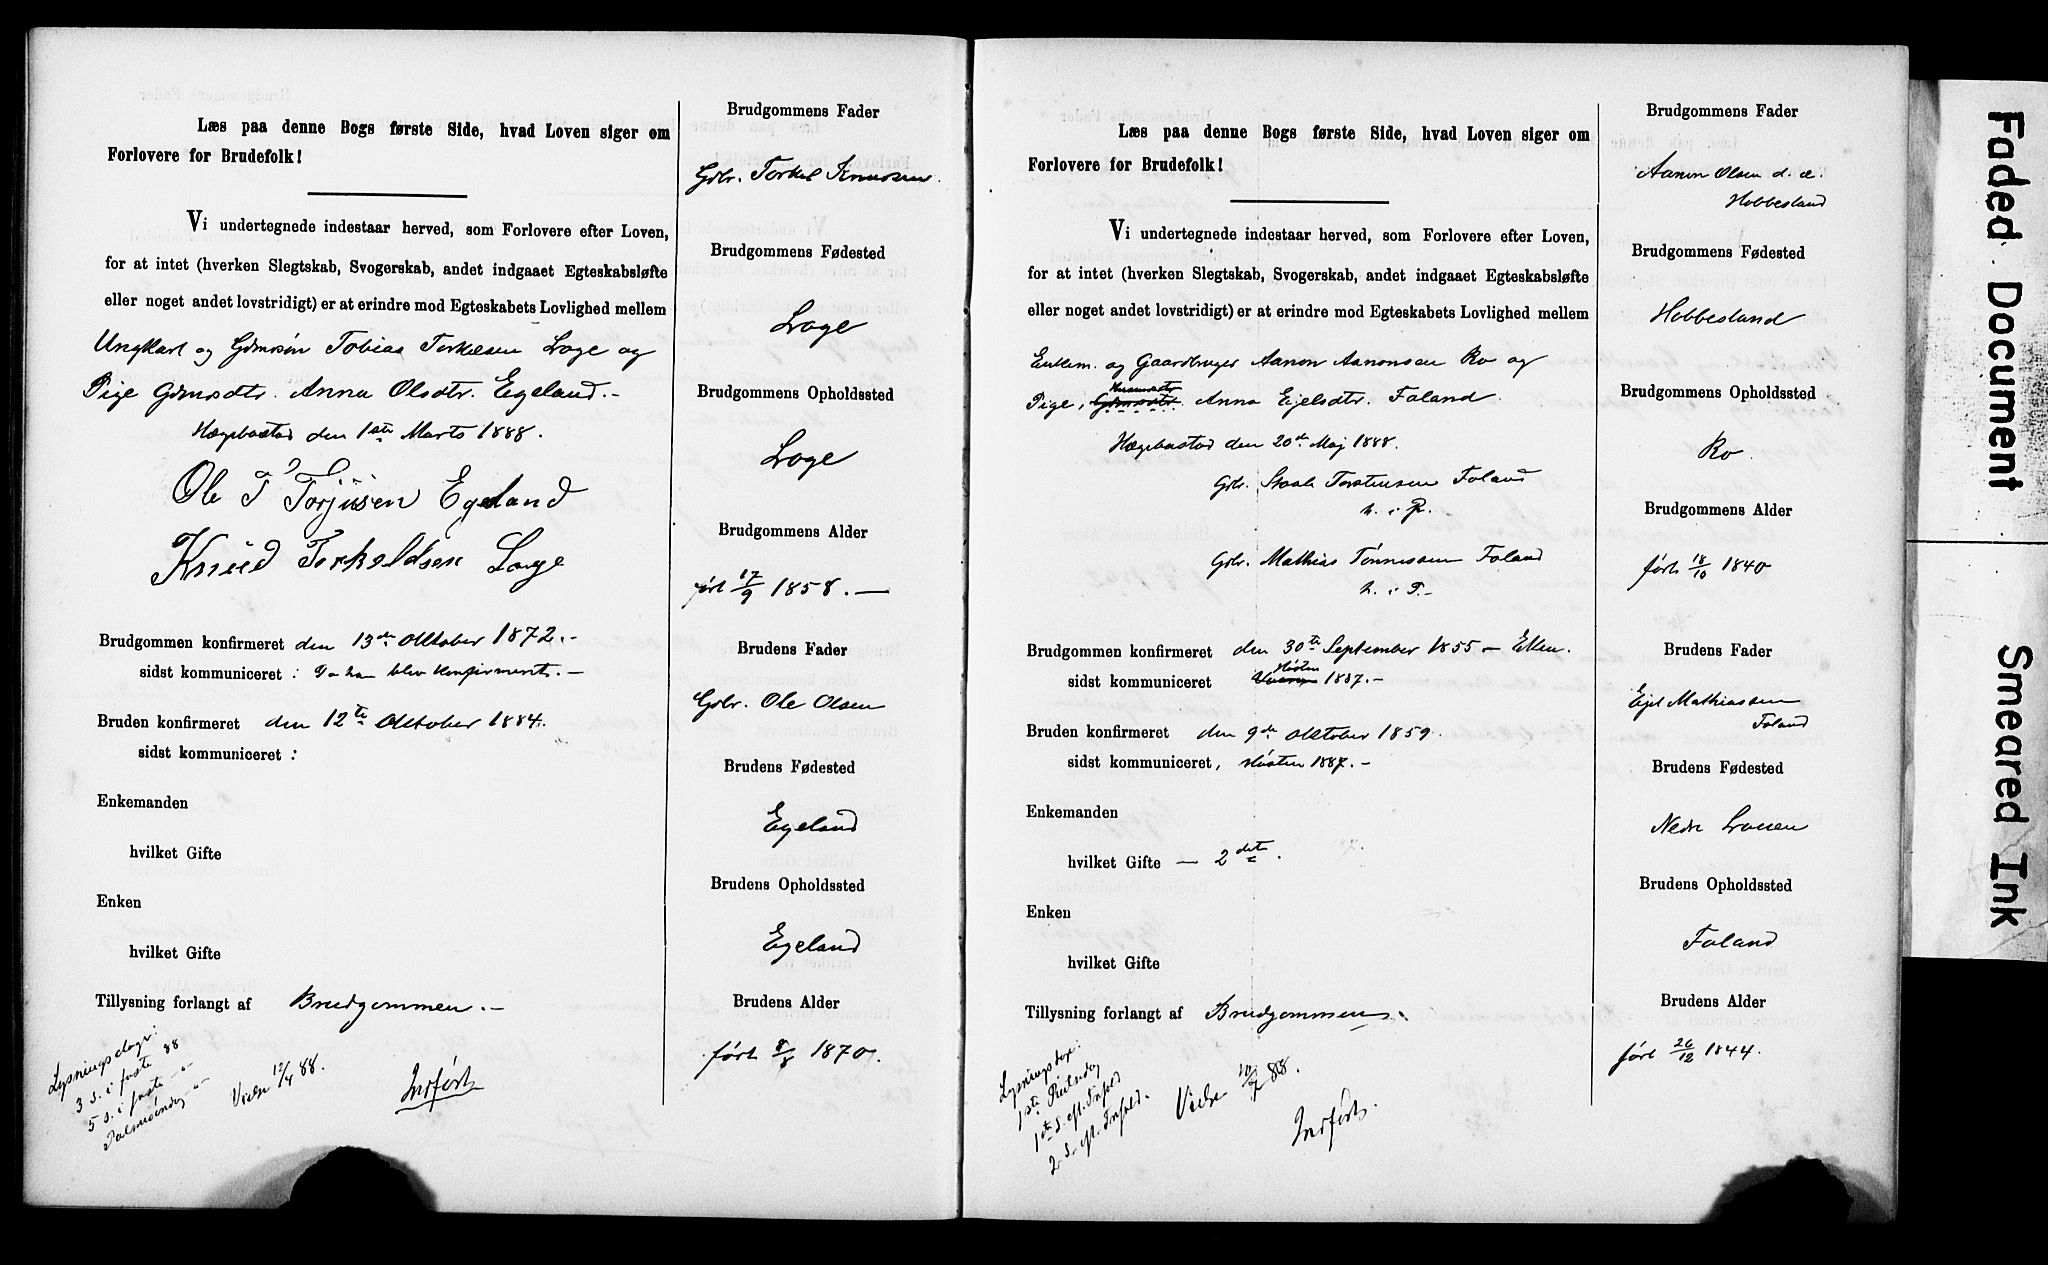 Læs paa denne Bogs første Side, hvad Loven siger om
Forlovere for Brudefolk!
Vi undertegnede indestaar herved, som Forlovere efter Loven,
for at intet (hverken Slegtskab, Svogerskab, andet indgaaet Egteskabsløfte
eller noget andet lovstridigt) er at erindre mod Egteskabets Lovlighed mellem
Ungkarl og Gdmsøn Tobias Torkelsen Loge og
Pige Gdmsdtr. Anna Olsdtr. Egeland.-
Hægebostad den 1ste Marts 1888.
Ole T Torjusen Egeland
Knud Torkeldsen Loge
Brudgommen konfirmeret den 13de Oktober 1872.-
sidst kommuniceret : Da han blev konfirmert.-
Bruden konfirmeret den 12te Oktober 1884.
sidst kommuniceret :
Enkemanden
hvilket Gifte
Enken
hvilket Gifte
Tillysning forlangt af Brudgommen.-
Lysningsdage:
3 S. i faste 88
5 S. i faste -"-
Palmesøndag -"-
Viede 12/4 88.
Indført
Brudgommens Fader
Gdbr. Torkel Knudsen
Brudgommens Fødested
Loge
Brudgommens Opholdssted
Loge
Brudgommens Alder
født 17/9 1858.-
Brudens Fader
Gdbr. Ole Olsen
Brudens Fødested
Egeland
Brudens Opholdssted
Egeland
Brudens Alder
født 8/8 1870.
Læs paa denne Bogs første Side, hvad Loven siger om
Forlovere for Brudefolk!
Vi undertegnede indestaar herved, som Forlovere efter Loven,
for at intet (hverken Slegtskab, Svogerskab, andet indgaaet Egteskabsløfte
eller noget andet lovstridigt) er at erindre mod Egteskabets Lovlighed mellem
Enkem. og Gaardbruger Aanon Aanonsen Ro og
Pige, Gdmsdtr. Anna Ejelsdtr. Faland.
Hægebostad den 20de Maj 1888.
Gdbr. Torstensen Faland
m. i P.
Gdbr. Mathias Tønnessen Faland
m. i P.-
Brudgommen konfirmeret den 30te September 1855 -
sidst kommuniceret Høsten 1887.-
Bruden konfirmeret den 9de Oktober 1859.
sidst kommuniceret, Høsten 1887.-
Enkemanden
hvilket Gifte - 2det.
Enken
hvilket Gifte
Tillysning forlangt af Brudgommen.
1ste Pintsedag
1ste S. eft. Trefold
2 S. eft. Trefold.
Viede 10/7 88.
Indført.
Brudgommens Fader
Aanon Olsen d. æ.
Hobbesland
Brudgommens Fødested
Hobbesland
Brudgommens Opholdssted
Ro
Brudgommens Alder
født 18/10 1840
Brudens Fader
Ejel Mathiassen
Faland
Brudens Fødested
Nedre
Brudens Opholdssted
Faland
Brudens Alder
født 26/12 1844.
Faded Document
Smeared Ink